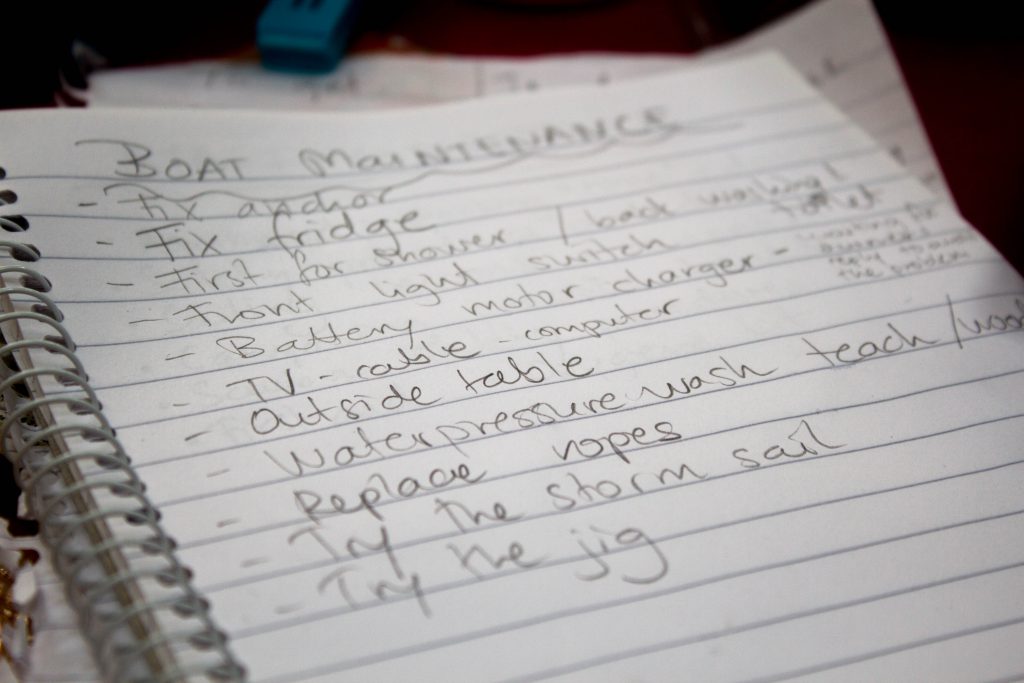 BOAT MAINTENANCE
- Fix anchor
- Fix fridge
- First for shower / back washing!
toilet
- Front light switch
- Battery motor charger -
the problem
- TV - cable - computer
- Outside table
- Waterpressure wash teach/wood
- Replace ropes
- Try the storm sail
- Try the jig